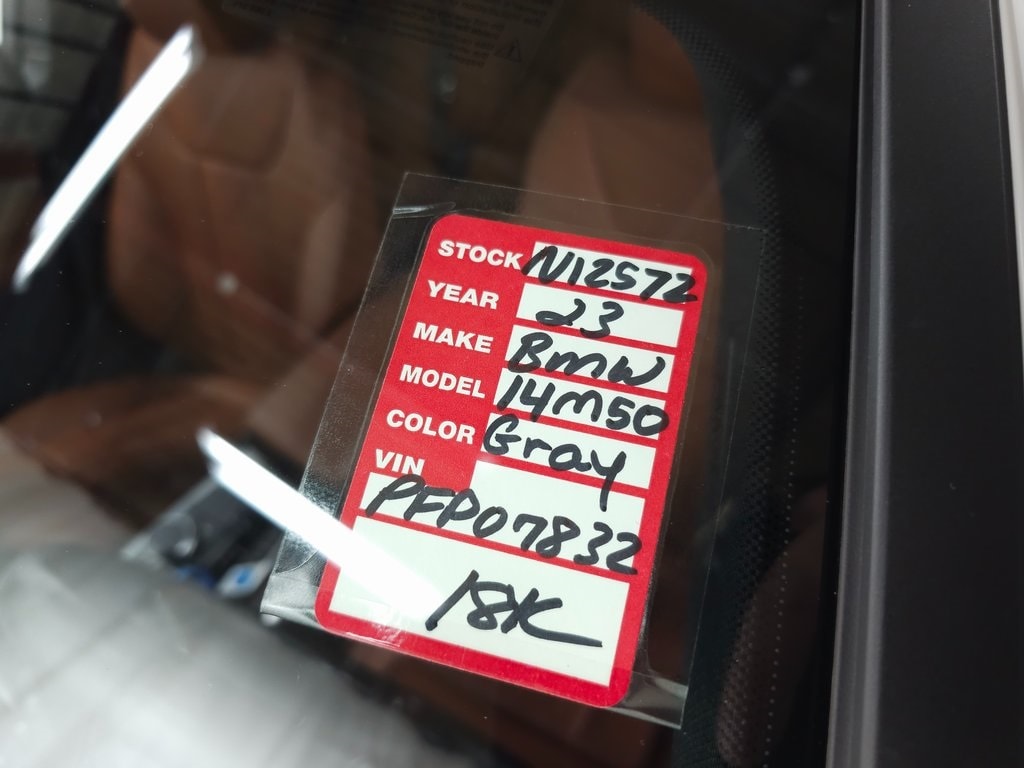 STOCK N12572
YEAR 23
MAKE BMW
MODEL 14M50
COLOR Gray
VIN
PFP07832
18K